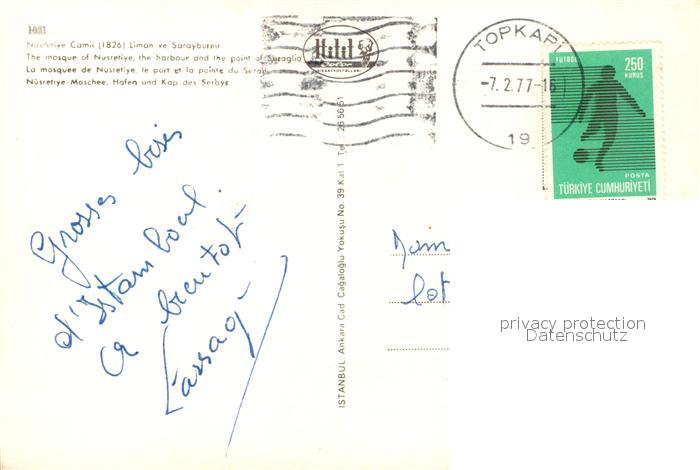 Nusretiye Camii (1826) Liman ve Sarayburnu
The mosque of Nusretiye, the harbour and the point of Seraglio
La mosquée de Nusretiye, le port et la pointe du Serail
Nüsretiye-Moschee, Hafen und Kap des Serays
Hitit
Color
TOPKAPI
-7.2.77-16
19
FUTBOL
250
KURUS
POSTA
TÜRKİYE CUMHURİYETİ
Grosses bises
d'Istamboul.
a bientot
İSTANBUL Ankara Cad Cağaloğlu Yokuşu No. 39 Kat 1 Tel : 26 56 51
lot
privacy protection
Datenschutz